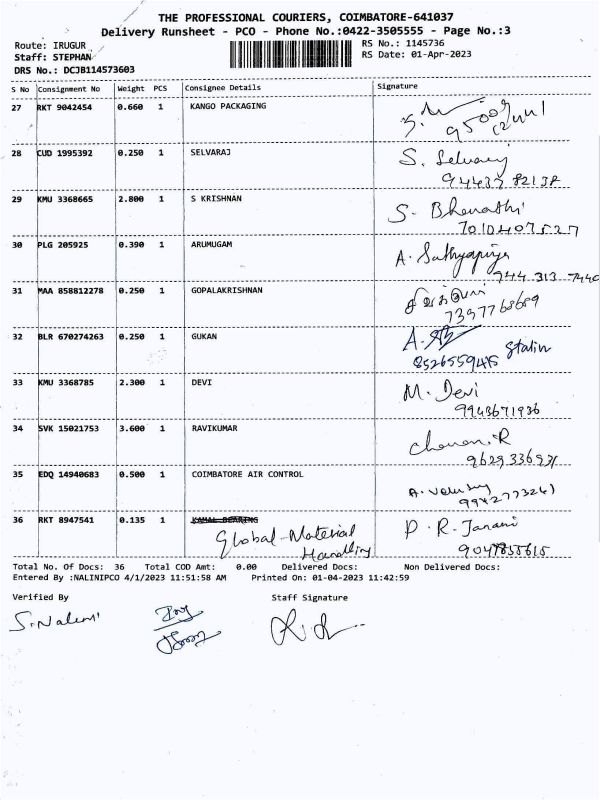 THE PROFESSIONAL COURIERS, COIMBATORE-641037
Delivery Runsheet - PCO - Phone No.:0422-3505555 - Page No.:3
Route: IRUGUR RS No.: 1145736
Staff: STEPHAN RS Date: 01-Apr-2023
DRS No.: DCJB114573603
S No Consignment No Weight PCS Consignee Details Signature
27 RKT 9042454 0.660 1 KANGO PACKAGING
28 CUD 1995392 0.250 1 SELVARAJ S. Selvaraj
94437 82138
29 KMU 3368665 2.800 1 S KRISHNAN S. Bharathi
7010407527
30 PLG 205925 0.390 1 ARUMUGAM A. Sathyapriya
944 313 7440
31 MAA 858812278 0.250 1 GOPALAKRISHNAN
7397768689
32 BLR 670274263 0.250 1 GUKAN Stalin
8526559415
33 KMU 3368785 2.300 1 DEVI M. Devi
9943671936
34 SVK 15021753 3.600 1 RAVIKUMAR
9629336931
35 EDQ 14940683 0.500 1 COIMBATORE AIR CONTROL
9942773261
36 RKT 8947541 0.135 1 KAMAL BEARING P. R. Janani
Global-Material
Handling 9047855615
Total No. Of Docs: 36 Total COD Amt: 0.00 Delivered Docs: Non Delivered Docs:
Entered By :NALINIPCO 4/1/2023 11:51:58 AM Printed On: 01-04-2023 11:42:59
Verified By Staff Signature
S.Nalini